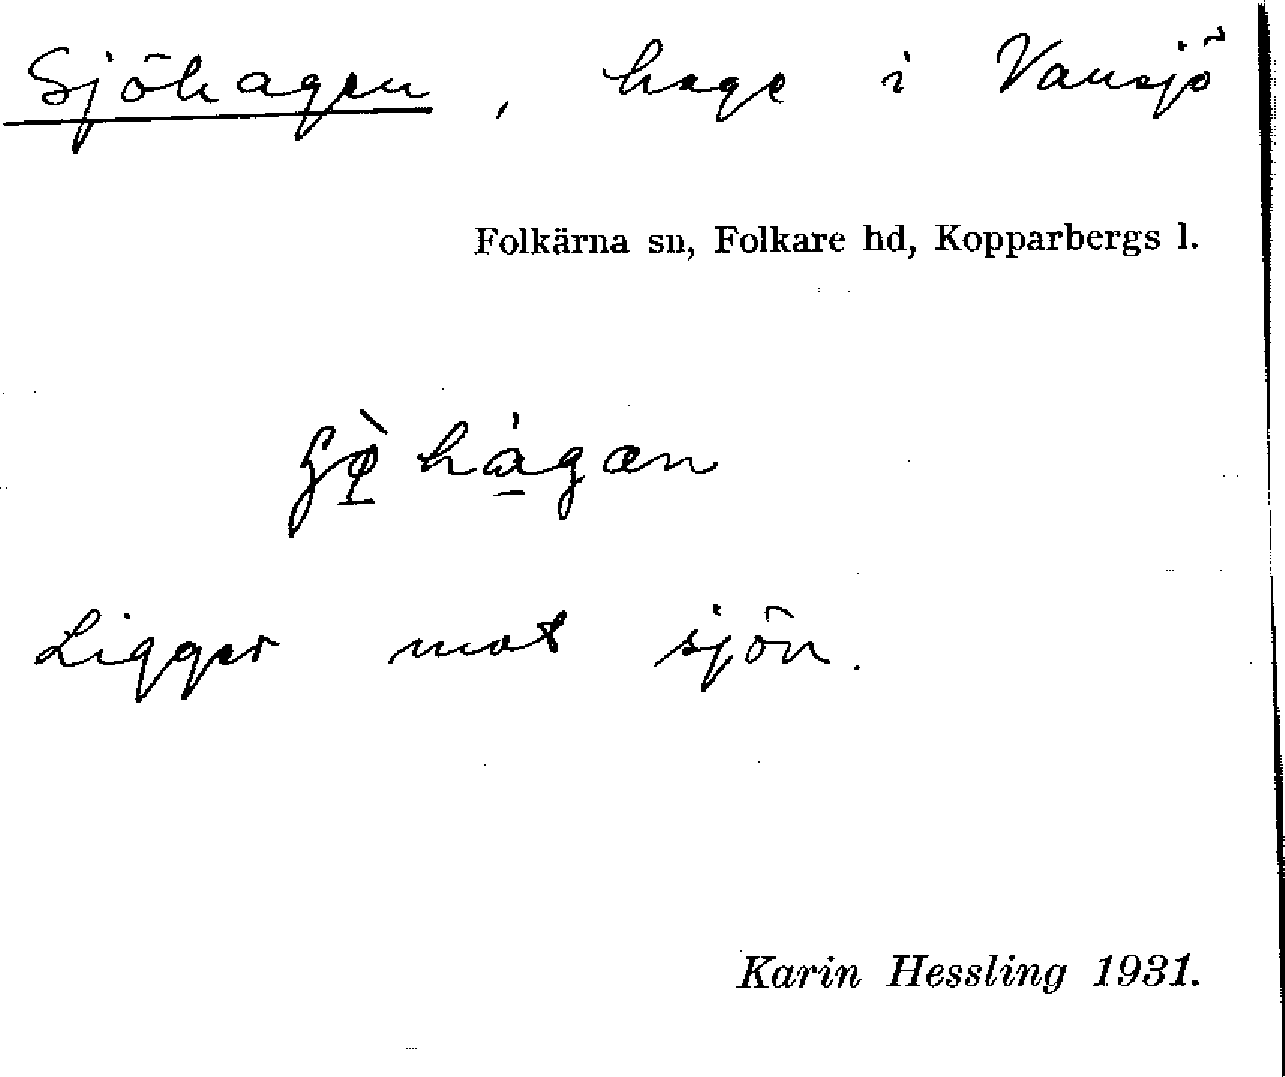 Sjöhagen, hage i Vansjö
Folkärna sn, Folkare hd, Kopparbergs l.
Ligger mot sjön.
Karin Hessling 1931.